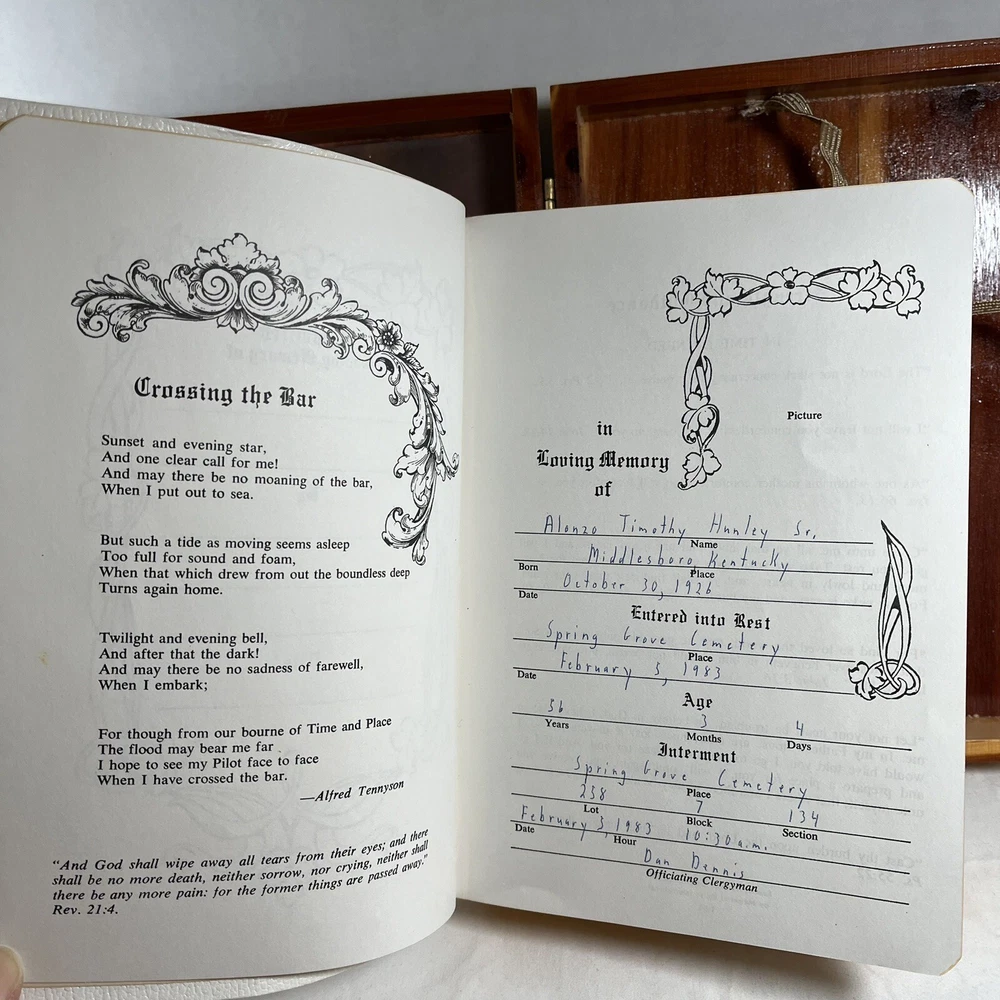 Crossing the Bar
Sunset and evening star,
And one clear call for me!
And may there be no moaning of the bar,
When I put out to sea.
But such a tide as moving seems asleep
Too full for sound and foam,
When that which drew from out the boundless deep
Turns again home.
Twilight and evening bell,
And after that the dark!
And may there be no sadness of farewell,
When I embark;
For though from our bourne of Time and Place
The flood may bear me far
I hope to see my Pilot face to face
When I have crossed the bar.
—Alfred Tennyson
"And God shall wipe away all tears from their eyes; and there
shall be no more death, neither sorrow, nor crying, neither shall
there be any more pain: for the former things are passed away."
Rev. 21:4.
Picture
in
Loving Memory
of
Alonzo Timothy Hunley Sr.
Name
Middlesboro, Kentucky
Born Place
October 30, 1926
Date
Entered into Rest
Spring Grove Cemetery
Place
February 3, 1983
Date
Age
56 3 4
Years Months Days
Interment
Spring Grove Cemetery
Place
238 7 134
Lot Block Section
February 3, 1983 10:30 a.m.
Date Hour
Dan Dennis
Officiating Clergyman